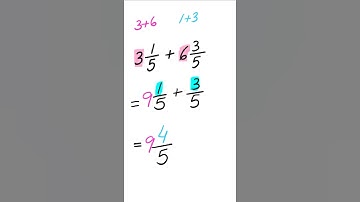 3+6 1+3
3 1/5 + 6 3/5
= 9 1/5 + 3/5
= 9 4/5